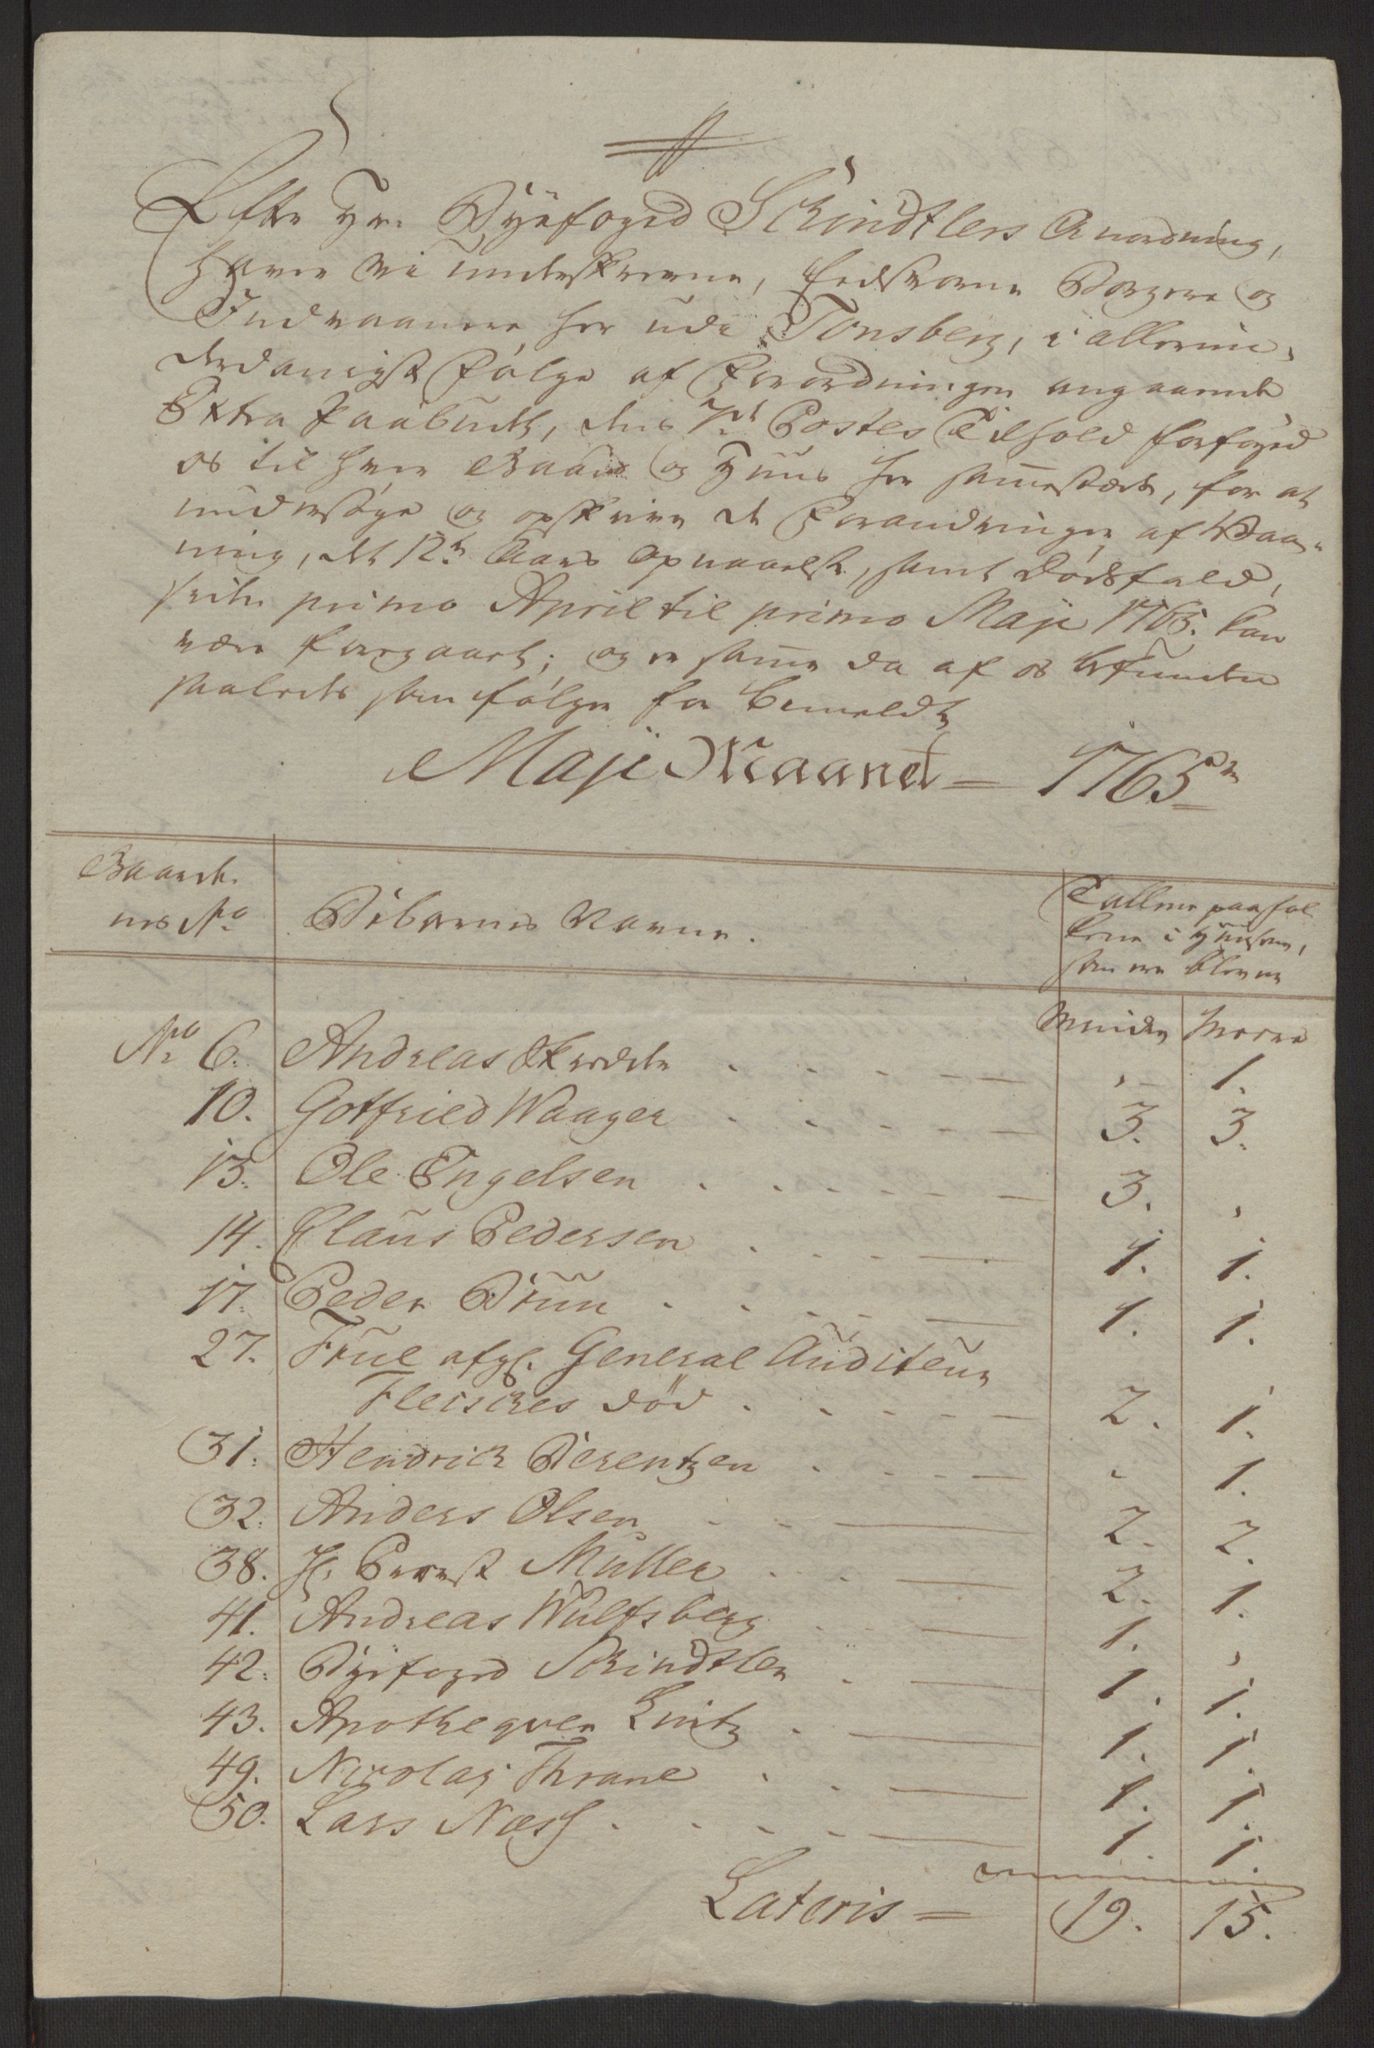 Efter Hr. Byefoged Schindtlers Anordning,
Haver Vi underskrevne, Eedsvorne Borgere og
Indvaanere her udi Tønsberg, i allerun-
derdanigst Følge af Forordningen angaaende
Extra Paabudt, dens 7de Postes Tilhold forføyed
os til hver Gaard og Huus her sammestæds, for at
undersøge og opskrive de Forandringer af Vaa-
ning, det 12te Aars Opnaaelse, samt Dødsfald,
siden primo April til primo Maji 1765. kan
være foregaaet; og er samme da af os befunden
saaledes som følger for bemeldte
Maji Maanet = 1765de
Gaarde-
nes No Beboernes Navne. Tallene paa Fol
kene i Huusene,
som ere blevne
Mindre Meere
No 6. Andreas . . . . — „ 1.
10. Gotfried Waager . . . . — 3. 3.
13. Ole Engelsen . . . . . — 3. „
14. Claus Pedersen . . . — 1. 1.
17. Peder Bruun . . . . — 1. 1.
27. Frue afg. General Auditeur
Fleisches død . . . . — 2. 1.
31. Hendrich Berentzen . . . — „ 1.
32. Anders Olsen . . . — 2. 2.
38. Hr. Provst Müller . . . — 2. 1.
41. Andreas Wulfsberg . . . — 1. „
42. Byefoged Schindtler . — 1. 1.
43. Apothequer Lintz . — 1. 1.
49. Nicolaj Thrane . . . — 1. 1.
50. Lars Næss . . . . — 1. 1.
Lateris = 19. 15.